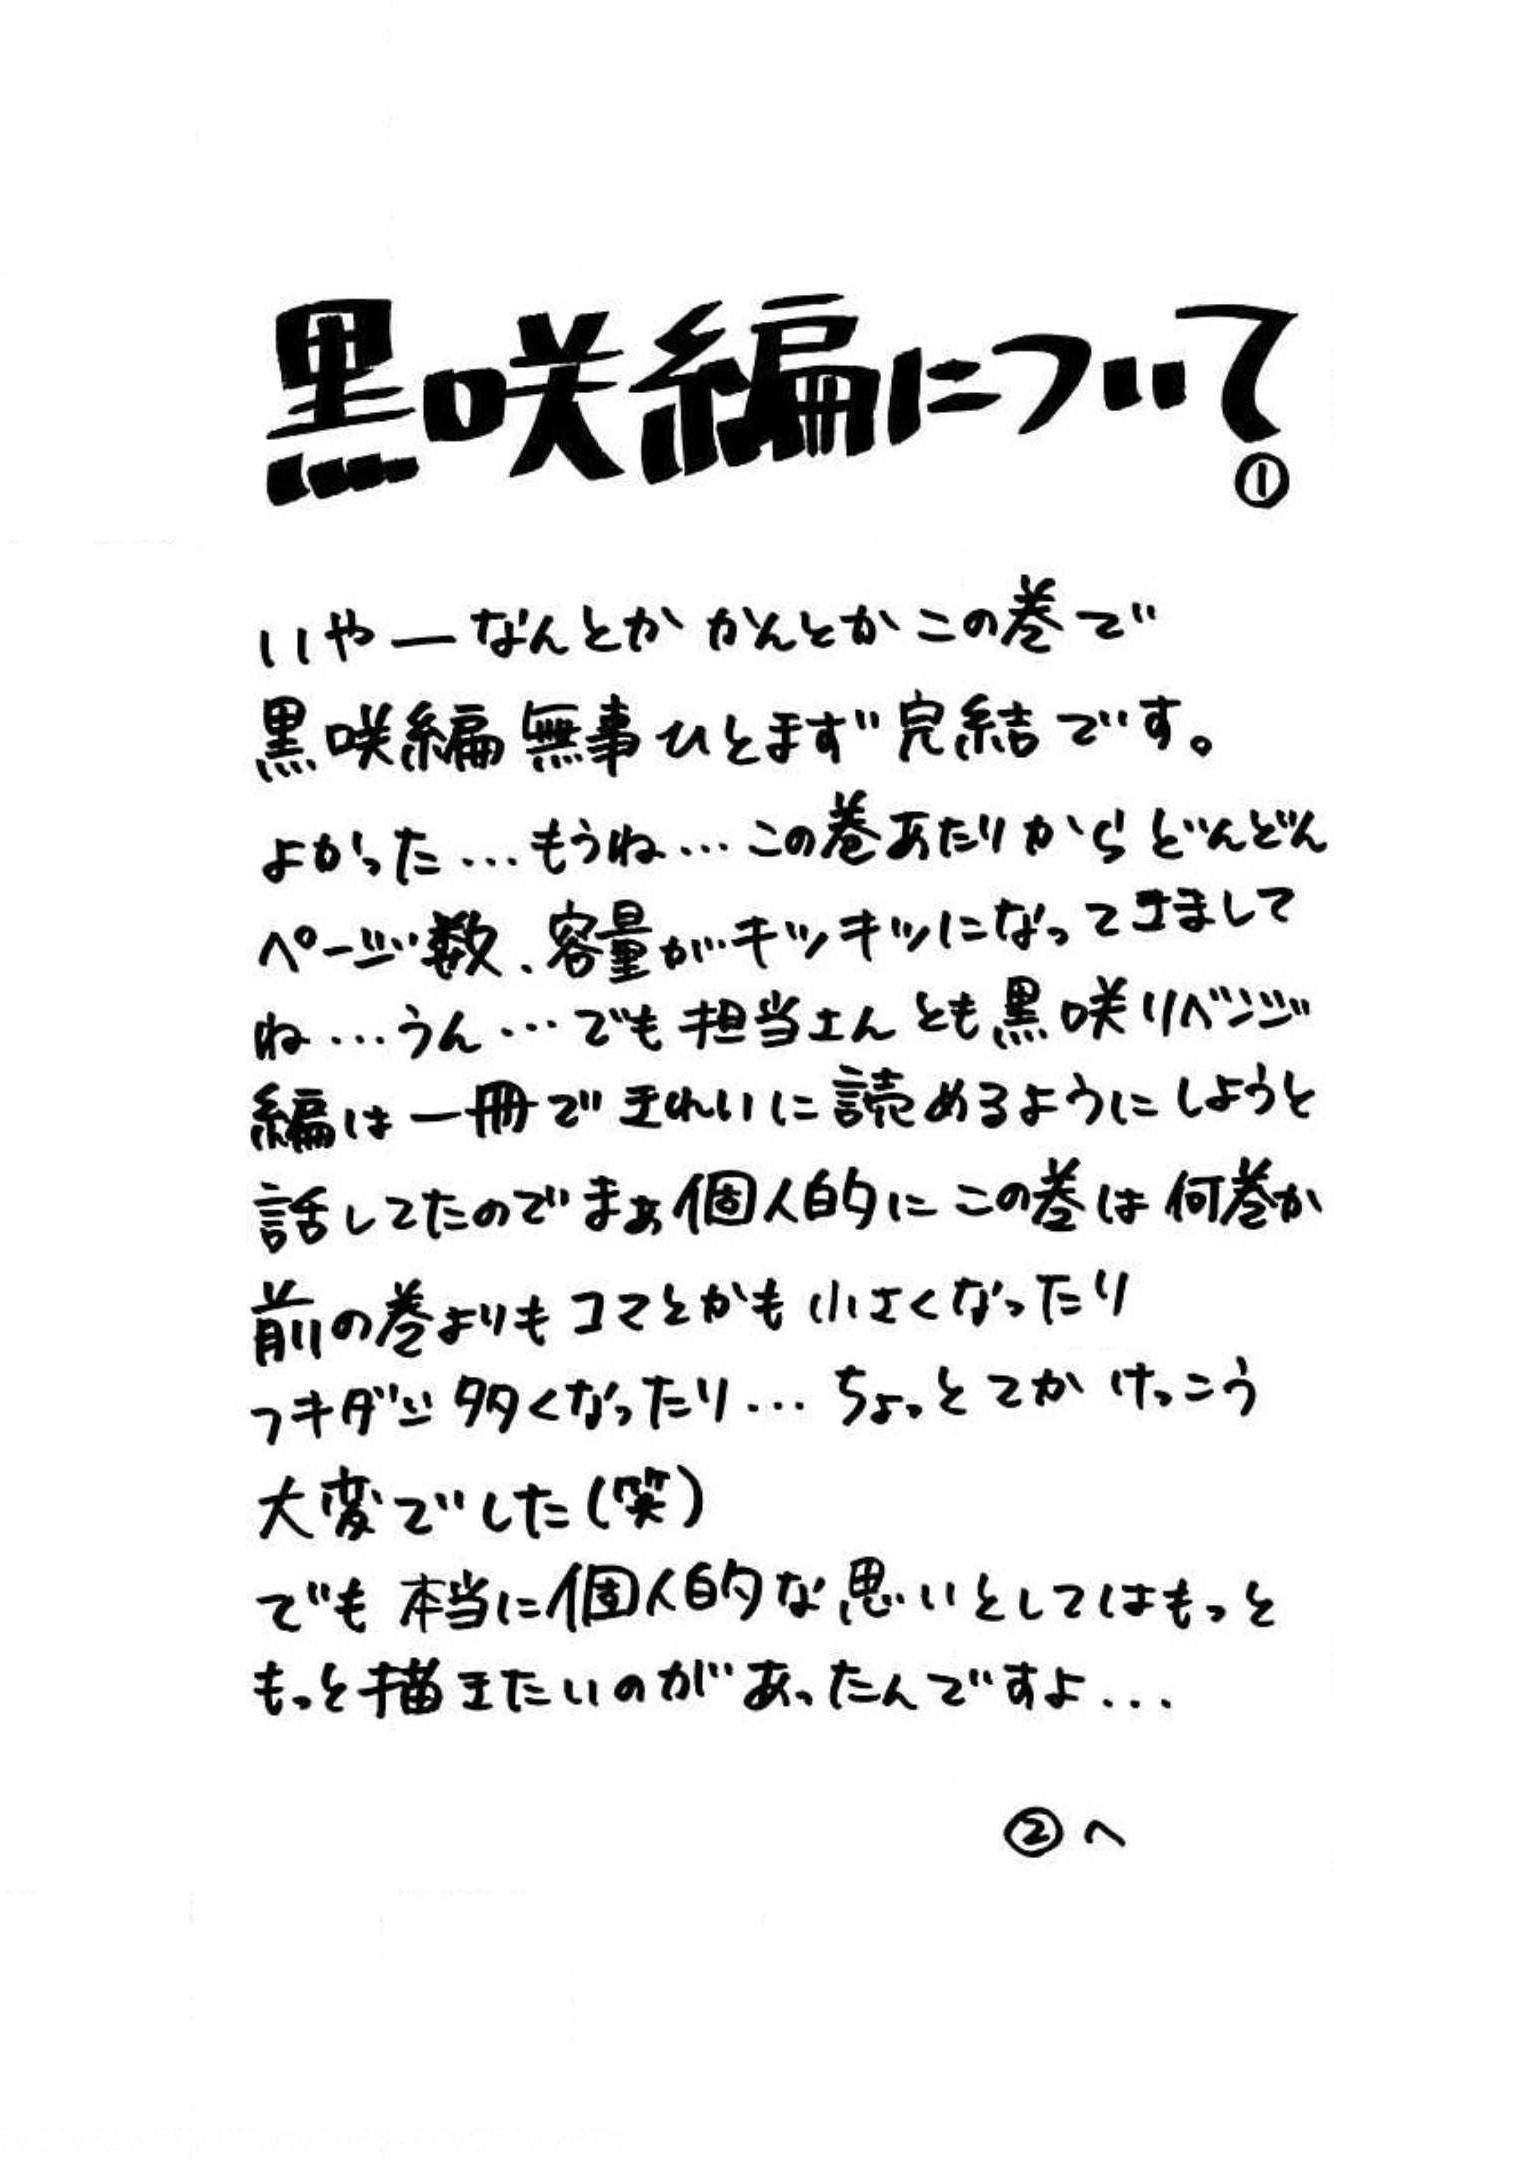 黒咲編について
①
いやーなんとかかんとかこの巻で
黒咲編無事ひとまず完結です。
よかった…もうね…この巻あたりからどんどん
ページ数、容量がキツキツになってきまして
ね…うん…でも担当さんとも黒咲リベンジ
編は一冊できれいに読めるようにしようと
話してたのでまぁ個人的にこの巻は何巻か
前の巻よりもコマとかも小さくなったり
フキダシ多くなったり…ちょっとてかけっこう
大変でした(笑)
でも本当に個人的な思いとしてはもっと
もっと描きたいのがあったんですよ...
②へ